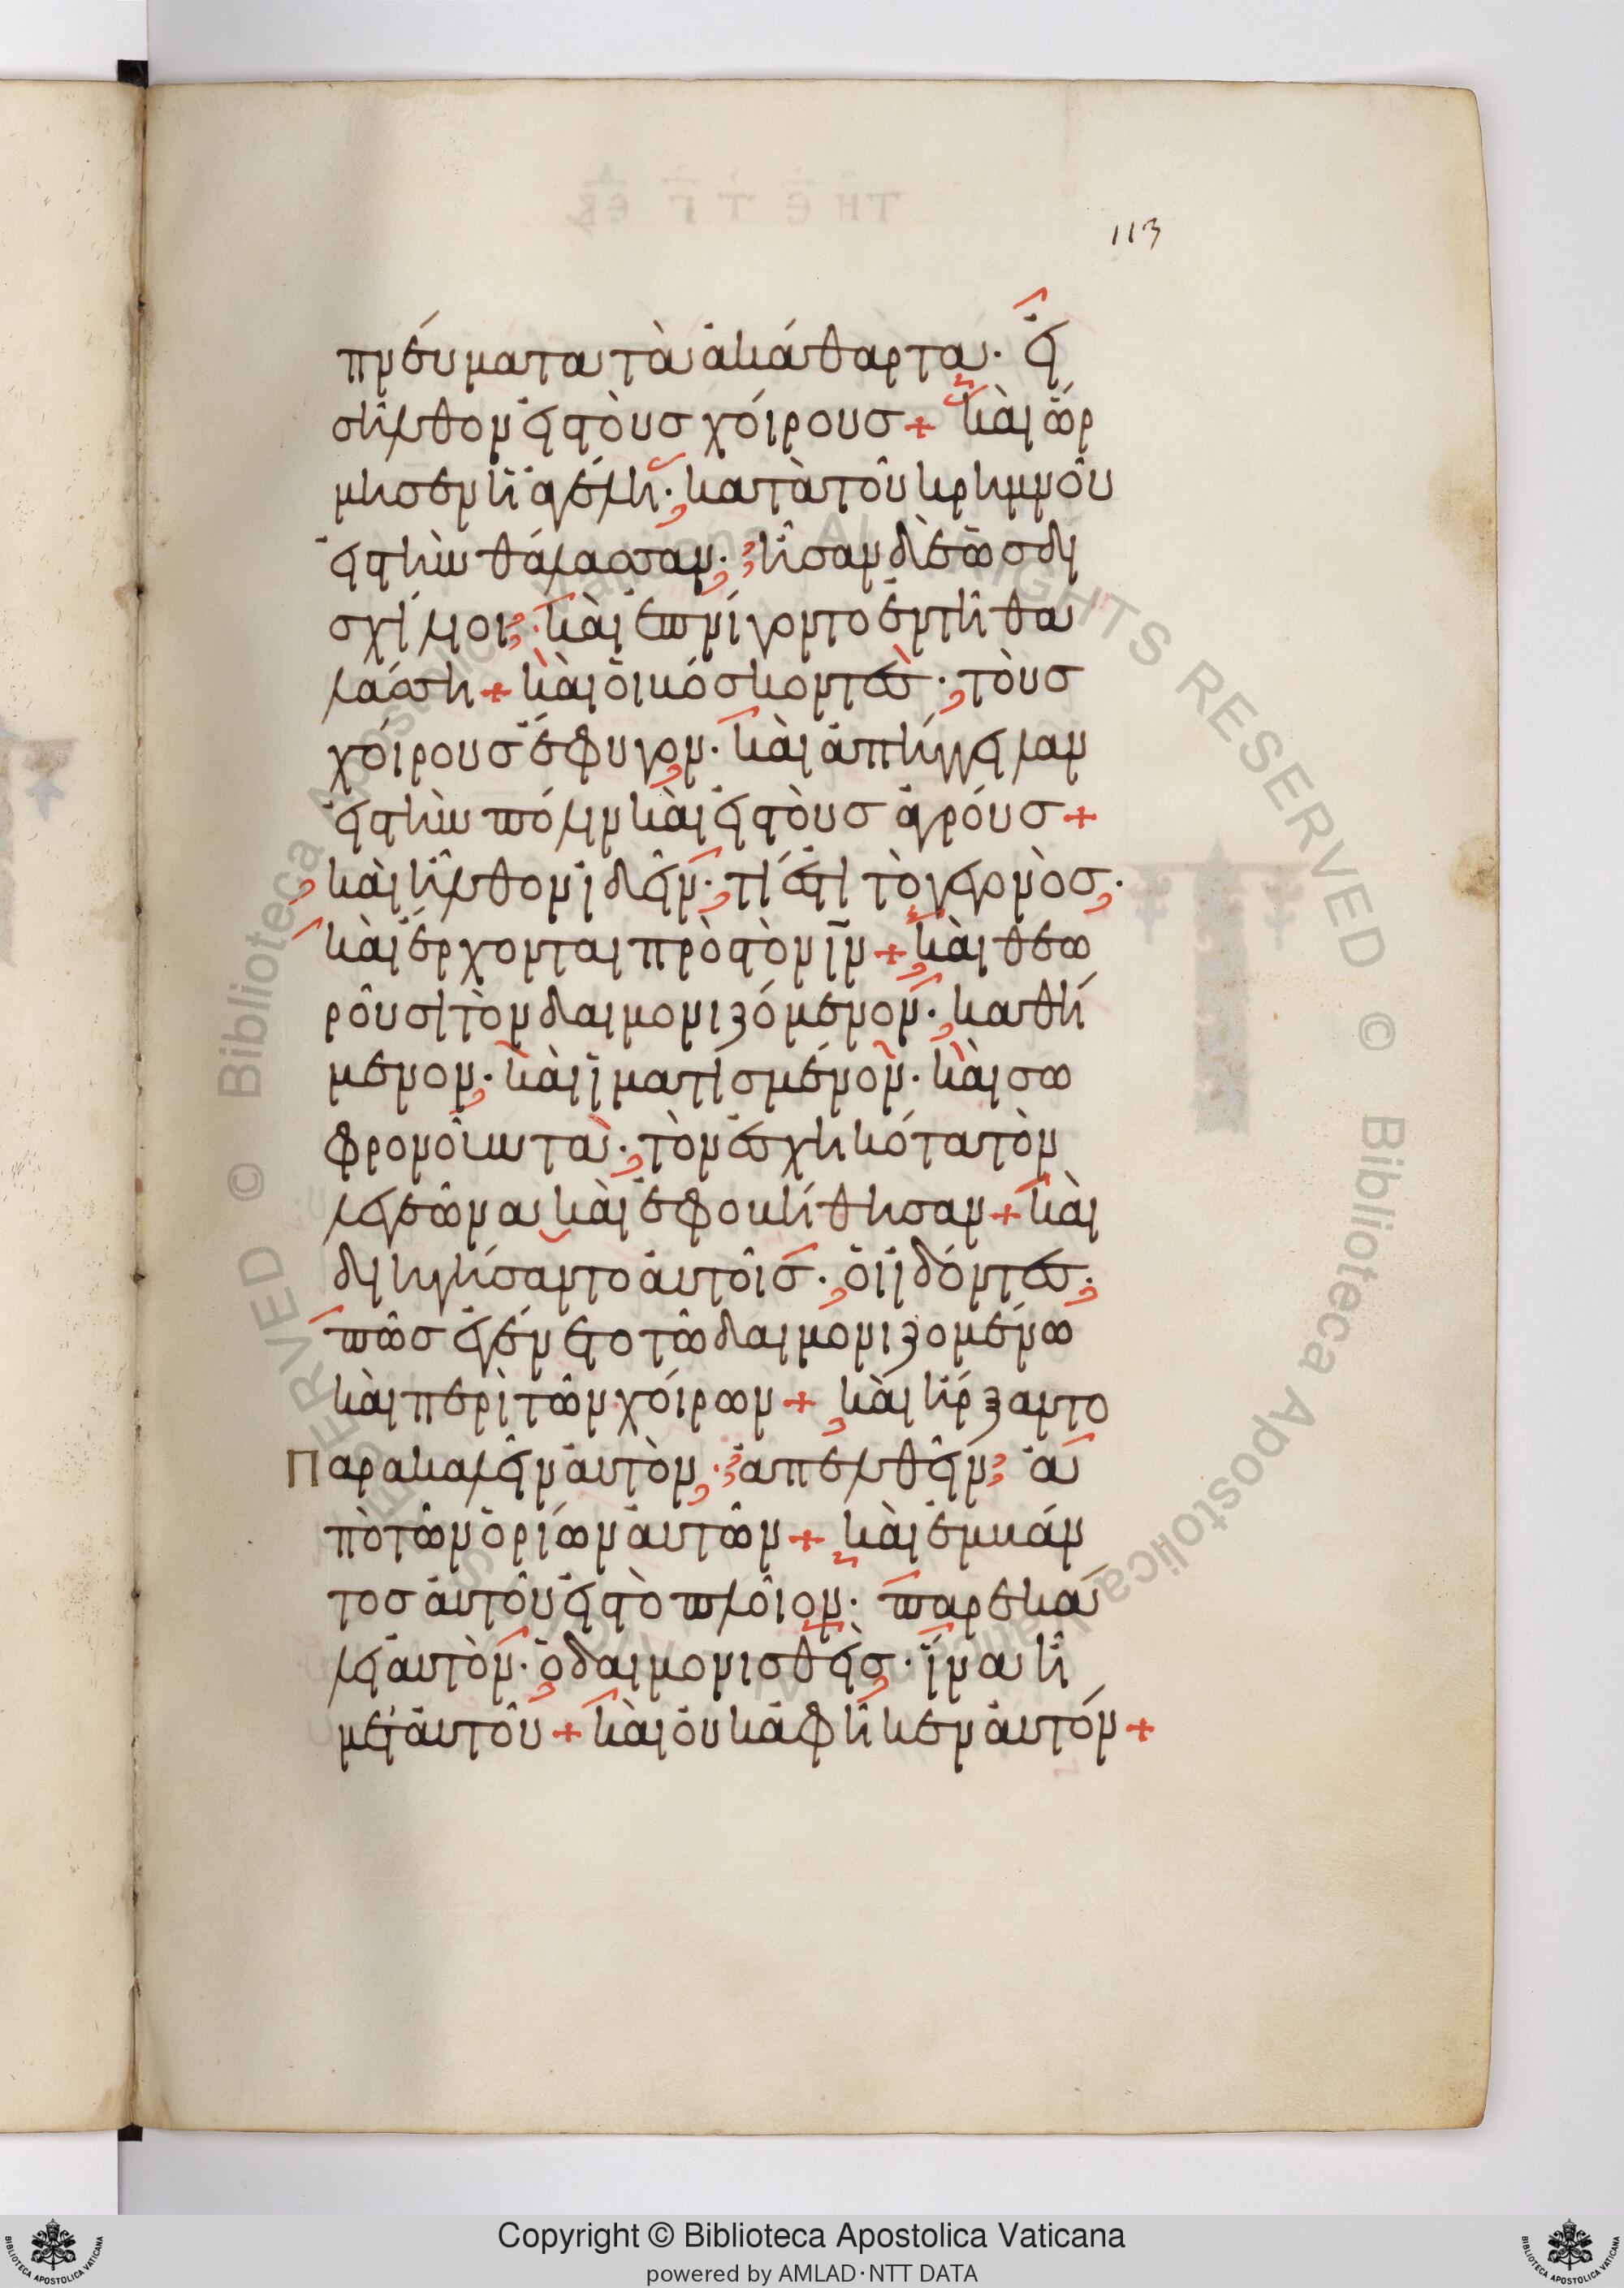 113
πνεύματα τὰ ἀκάθαρτα· εἰ
σῆλθον εἰς τοὺς χοίρους + καὶ ὥρ
μησεν ἡ ἀγέλη· κατὰ τοῦ κρημνοῦ
εἰς τὴν θάλασσαν· ἦσαν δὲ ὡς δι
σχίλιοι· καὶ ἐπνίγοντο ἐν τῆ θα
λάσση + καὶ οἱ βόσκοντες· τοὺς
χοίρους ἔφυγον· καὶ ἀπήγγειλαν
εἰς τὴν πόλιν καὶ εἰς τοὺς ἀγρούς +
καὶ ἦλθον ἰδεῖν· τί ἐστι τὸ γεγονὸς·
καὶ ἔρχονται πρὸς τὸν ιν + καὶ θεω
ροῦσι τὸν δαιμονιζόμενον· καθή
μενον· καὶ ἱματισμένον· καὶ σω
φρονοῦντα· τὸν ἐσχηκότα τὸν
λεγεῶνα καὶ ἐφοβήθησαν + καὶ
διηγήσαντο αὐτοῖς· οἱ ἰδόντες·
πῶς ἐγένετο τῶ δαιμονιζομένω
καὶ περὶ τῶν χοίρων + καὶ ἤρξαντο
Παρακαλεῖν αὐτὸν· ἀπελθεῖν ἀ
πὸ τῶν ὁρίων αὐτῶν + καὶ ἐμβάν
τος αὐτοῦ εἰς τὸ πλοῖον· παρεκά
λει αὐτὸν· ὁ δαιμονισθεὶς· ἵνα ἦ
μετ' αὐτοῦ + καὶ οὐκ ἀφῆκεν αὐτόν +
© Biblioteca Apostolica Vaticana ALL RIGHTS RESERVED
© Biblioteca Apostolica Vaticana ALL RIGHTS RESERVED
Copyright © Biblioteca Apostolica Vaticana
powered by AMLAD·NTT DATA
BIBLIOTECA APOSTOLICA VATICANA
BIBLIOTECA APOSTOLICA VATICANA